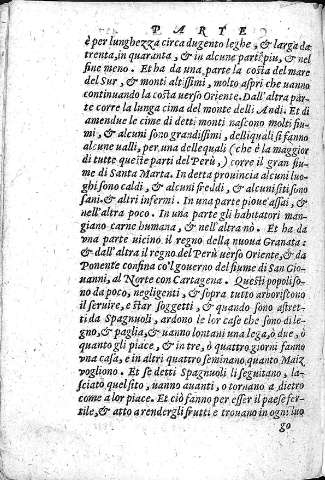 PARTE
è per lunghezza circa dugento leghe, & larga da
trenta, in quaranta, & in alcune parti piu, & nel
fine meno. Et ha da una parte la costa del mare
del Sur, & monti altissimi, molto aspri che uanno
continuando la costa uerso Oriente. Dall'altra par
te corre la lunga cima del monte delli Andi. Et di
amendue le cime di detti monti nascono molti fiu-
mi, & alcuni sono grandissimi, delliquali si fanno
alcune ualli, per una dellequali (che è la maggior
di tutte queste parti del Perù,) corre il gran fiu-
me di Santa Marta. In detta prouincia alcuni luo-
ghi sono caldi, & alcuni freddi, & alcuni siti sono
sani, & altri infermi. In una parte pioue assai, &
nell'altra poco. In una parte gli habitatori man-
giano carne humana, & nell'altra nò. Et ha da
una parte uicino il regno della nuoua Granata:
& dall'altra il regno del Perù uerso Oriente, & da
Ponente confina co'l gouerno del fiume di San Gio-
uanni, al Norte con Cartagena. Questi popoli so-
no da poco, negligenti, & sopra tutto aborriscono
il seruire, e star soggetti, & quando sono astret-
ti da Spagnuoli, ardono le lor case che sono di le-
gno, & paglia, & uanno lontani una lega, ò due, ò
quanto gli piace, & in tre, ò quattro giorni fanno
una casa, e in altri quattro seminano quanto Maiz
uogliono. Et se detti Spagnuoli li seguitano, la-
sciato quel sito, uanno auanti, o tornano a dietro
come a lor piace. Et ciò fanno per esser il paese fer-
tile, & atto a rendergli frutti e trouano in ogni luo
go